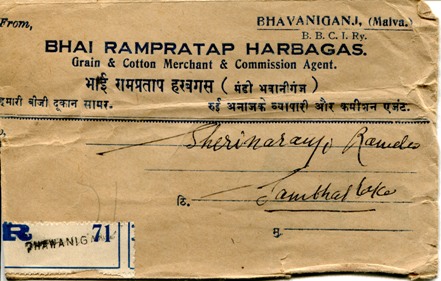 From,
BHAVANIGANJ, (Malva.)
B. B. C. I. Ry.
BHAI RAMPRATAP HARBAGAS.
Grain & Cotton Merchant & Commission Agent.
भाई रामप्रताप हरबगस ( मंडी भवानीगंज )
हमारी बीजी दूकान सामर.
रुई अनाजके व्यापारी और कमीशन एजंट.
Sherinaranji Ramdeo
ठि.
Sambhar Lake
मु.
R
71
BHAWANIGANJ